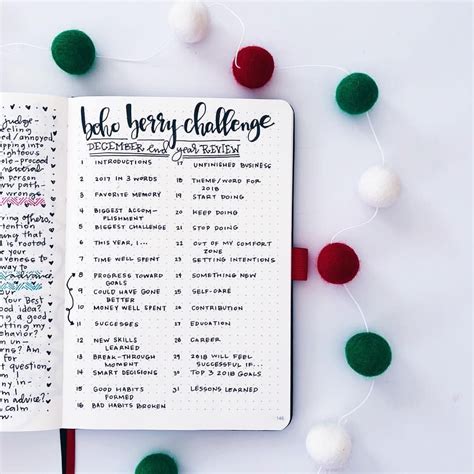 judge-
feeling
ed/annoyed
apping
into
righteous
ole-proceed
person
own path-
wrongs.
uring others,
tention
ough
is rooted
your
veness
way to
advance.
Your Best
od idea?
ng a good
utting my
behavior?
m an
un-
ons? Am
for in
uest question,
m I in
I am
calm
or.
boho berry challenge
DECEMBER end year REVIEW
1 INTRODUCTIONS
2 2017 IN 3 WORDS
3 FAVORITE MEMORY
4 BIGGEST ACCOM-
PLISHMENT
5 BIGGEST CHALLENGE
6 THIS YEAR, I...
7 TIME WELL SPENT
8 PROGRESS TOWARD
GOALS
9 COULD HAVE GONE
BETTER
10 MONEY WELL SPENT
11 SUCCESSES
12 NEW SKILLS
LEARNED
13 BREAK-THROUGH
MOMENT
14 SMART DECISIONS
15 GOOD HABITS
FORMED
16 BAD HABITS BROKEN
17 UNFINISHED BUSINESS
18 THEME/WORD FOR
2018
19 START DOING
20 KEEP DOING
21 STOP DOING
22 OUT OF MY COMFORT
ZONE
23 SETTING INTENTIONS
24 SOMETHING NEW
25 SELF-CARE
26 CONTRIBUTION
27 EDUCATION
28 CAREER
29 2018 WILL FEEL
SUCCESSFUL IF...
30 TOP 3 2018 GOALS
31 LESSONS LEARNED